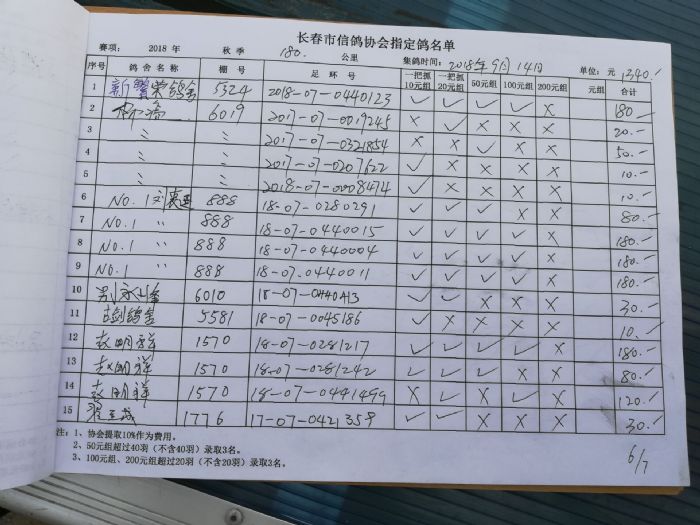 长春市信鸽协会指定鸽名单
赛项: 2018 年 秋 季 180. 公里 集鸽时间: 2018年9月14日 单位: 元 1340.-
序号 鸽舍名称 棚号 足环号 一把抓10元组 一把抓20元组 50元组 100元组 200元组 元组 合计
1 荣鸽舍 5324 2018-07-0440123 ✓ ✓ ✓ ✓ × 180.-
2 6019 2017-07-0019245 × ✓ × × × 20.-
3 〃 〃 2017-07-0321854 × × ✓ × × 50.-
4 〃 〃 2017-07-0207622 ✓ × × × × 10.-
5 〃 〃 2018-07-0008474 ✓ × × × × 10.-
6 NO.1 刘 888 18-07-0280291 ✓ ✓ ✓ × × 80.-
7 NO.1 〃 888 18-07-0440015 ✓ ✓ ✓ ✓ × 180.-
8 NO.1 〃 888 18-07-0440004 ✓ ✓ ✓ ✓ × 180.-
9 NO.1 〃 888 18-07-0440011 ✓ ✓ ✓ ✓ × 180.-
10 6010 18-07-0440413 ✓ ✓ × × × 30.-
11 鸽舍 5581 18-07-0045186 ✓ × × × × 10.-
12 赵明祥 1570 18-07-0281217 ✓ ✓ ✓ ✓ × 180.-
13 赵明祥 1570 18-07-0281242 ✓ ✓ ✓ × × 80.-
14 赵明祥 1570 18-07-0441499 × ✓ × ✓ × 120.-
15 1776 17-07-0421358 ✓ ✓ × × × 30.-
注: 1、协会提取10%作为费用。
2、50元组超过40羽(不含40羽)录取3名。
3、100元组、200元组超过20羽(不含20羽)录取3名。
6/7